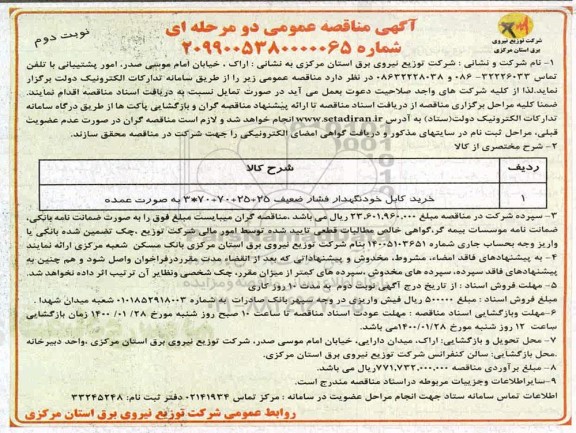 آگهی مناقصه عمومی دو مرحله ای
شماره ۲۰۹۹۰۰۵۳۸۰۰۰۰۰۶۵
نوبت دوم
شرکت توزیع نیروی
برق استان مرکزی
۱- نام شرکت و نشانی : شرکت توزیع نیروی برق استان مرکزی به نشانی : اراک ، خیابان امام موسی صدر، امور پشتیبانی با تلفن
تماس ۳۲۲۲۶۰۳۳-۰۸۶ و ۰۸۶۳۲۲۲۸۰۳۸ در نظر دارد مناقصه عمومی زیر را از طریق سامانه تدارکات الکترونیک دولت برگزار
نماید.لذا از کلیه شرکت های واجد صلاحیت دعوت بعمل می آید در صورت تمایل نسبت به دریافت اسناد مناقصه اقدام نمایند.
ضمنا کلیه مراحل برگزاری مناقصه از دریافت اسناد مناقصه تا ارائه پیشنهاد مناقصه گران و بازگشایی پاکت ها از طریق درگاه سامانه
تدارکات الکترونیک دولت(ستاد) به آدرس www.setadiran.ir انجام خواهد شد و لازم است مناقصه گران در صورت عدم عضویت
قبلی، مراحل ثبت نام در سایتهای مذکور و دریافت گواهی امضای الکترونیکی را جهت شرکت در مناقصه محقق سازند.
۲- شرح مختصری از کالا
ردیف شرح کالا
۱ خرید کابل خودنگهدار فشار ضعیف ۲۵+۲۵+۷۰+۷۰*۳ به صورت عمده
۳- سپرده شرکت در مناقصه مبلغ ۲۳.۶۰۱.۹۶۰.۰۰۰ ریال می باشد .مناقصه گران میبایست مبلغ فوق را به صورت ضمانت نامه بانکی،
ضمانت نامه موسسات بیمه گر،گواهی خالص مطالبات قطعی تایید شده توسط امور مالی شرکت توزیع ،چک تضمین شده بانکی یا
واریز وجه بحساب جاری شماره ۱۴۰۰۵۱۰۳۶۵۱ بنام شرکت توزیع نیروی برق استان مرکزی بانک مسکن شعبه مرکزی ارائه نمایند
۴- به پیشنهادهای فاقد امضاء، مشروط، مخدوش و پیشنهاداتی که بعد از انقضاء مدت مقرردرفراخوان واصل شود و هم چنین به
پیشنهادهای فاقد سپرده، سپرده های مخدوش ،سپرده های کمتر از میزان مقرر، چک شخصی ونظایر آن ترتیب اثر داده نخواهد شد.
۵- مهلت فروش اسناد : از تاریخ درج آگهی نوبت دوم به مدت ۱۰ روز کاری
مبلغ فروش اسناد : مبلغ ۵۰۰۰۰۰ ریال فیش واریزی در وجه سپهر بانک صادرات به شماره ۰۱۰۱۸۵۲۹۱۸۰۰۳ شعبه میدان شهدا .
۶- مهلت وبازگشایی اسناد مناقصه : مهلت عودت اسناد مناقصه تا ساعت ۱۰ صبح روز شنبه مورخ ۱۴۰۰/۰۱/۲۸ زمان بازگشایی
ساعت ۱۲ روز شنبه مورخ ۱۴۰۰/۰۱/۲۸می باشد.
۷- محل تحویل و بازگشایی: اراک، میدان دارایی، خیابان امام موسی صدر، شرکت توزیع نیروی برق استان مرکزی ،واحد دبیرخانه
.محل بازگشایی: سالن کنفرانس شرکت توزیع نیروی برق استان مرکزی.
۸- مبلغ برآوردی مناقصه ۷۷۱,۷۳۲,۰۰۰,۰۰۰ریال می باشد.
۹-سایراطلاعات وجزییات مربوطه دراسناد مناقصه مندرج است.
اطلاعات تماس سامانه ستاد جهت انجام مراحل عضویت در سامانه : مرکز تماس ۰۲۱۴۱۹۳۴ دفتر ثبت نام: ۳۳۲۴۵۲۴۸
روابط عمومی شرکت توزیع نیروی برق استان مرکزی